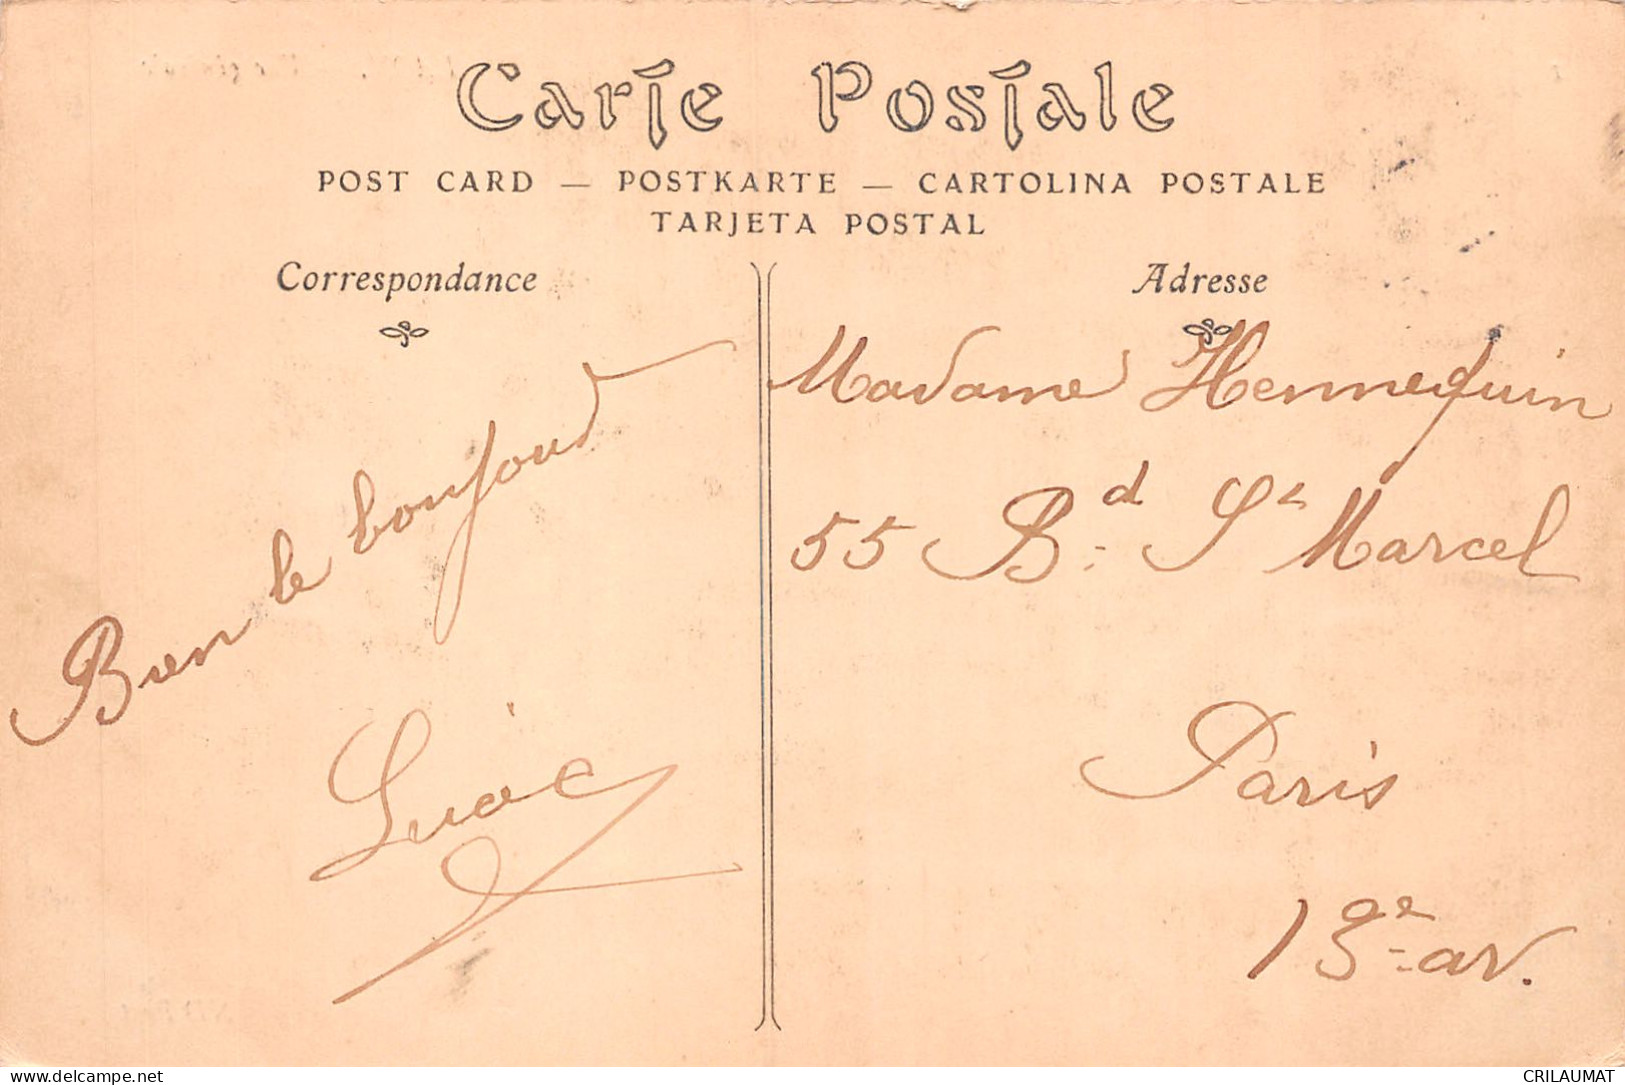 Carte Postale
POST CARD — POSTKARTE — CARTOLINA POSTALE
TARJETA POSTAL
Correspondance
Bien le bonjour
Adresse
Madame Hennequin
55 Bd St Marcel
Paris
13e ar.
CRILAUMAT